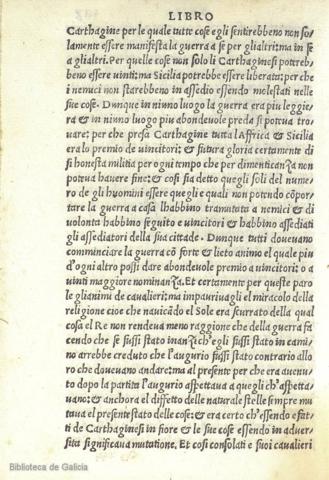 LIBRO
Carthagine per le quale tutte cose egli sentirebbeno non so/
lamente essere manifesta la guerra a se per gli altri: ma in se
a gli altri. Per quelle cose non solo li Carthaginesi potreb/
beno essere uinti: ma Sicilia potrebbe essere liberata: per che
i nemici non starebbeno in assedio essendo molestati nelle
sue cose. Dunque in niuno luogo la guerra era piu leggie/
ra & in niuno luogo piu abondeuole preda si potua tro
uare: per che presa Carthagine tutta l'Affrica & Sicilia
era lo premio de uincitori: & futura gloria certamente di
si honesta militia per ogni tempo che per dimenticanza non
potua hauere fine: & cosi sia detto quegli soli del nume/
ro de gli huomini essere quegli e quali non potendo cōpor/
tare la guerra a casa lhabbino tramutata a nemici & di
uolonta habbino seguito e uincitori & habbino assediati
gli assediatori della sua cittade. Dunque tutti doueuano
comminciare la guerra cō forte & lieto animo el quale piu
d'ogni altro possi dare abondeuole premio a uincitori: o a
uinti maggiore nominanza. Et certamente per queste paro
le gli animi de caualieri: ma impauriua gli el miracolo della
religione cioe che nauicādo el Sole era scurrato della qual
cosa el Re non rendeua meno raggione che della guerra fa
cendo che se fussi stato inanzi ch'egli fussi stato in cami/
no arrebbe creduto che l'augurio fussi stato contrario allo
ro che doueuano andare: ma al presente per che era auenu/
to dopo la partita l'augurio aspettaua a quegli ch'aspetta/
uano: & anchora el diffetto delle naturale stelle sempre mu
taua el presente stato delle cose: & era certo ch'essendo e fat/
ti de Carthaginesi in fiore & le sue cose essendo in aduer/
sita significaua mutatione. Et cosi consolati e suoi caualieri
Biblioteca de Galicia